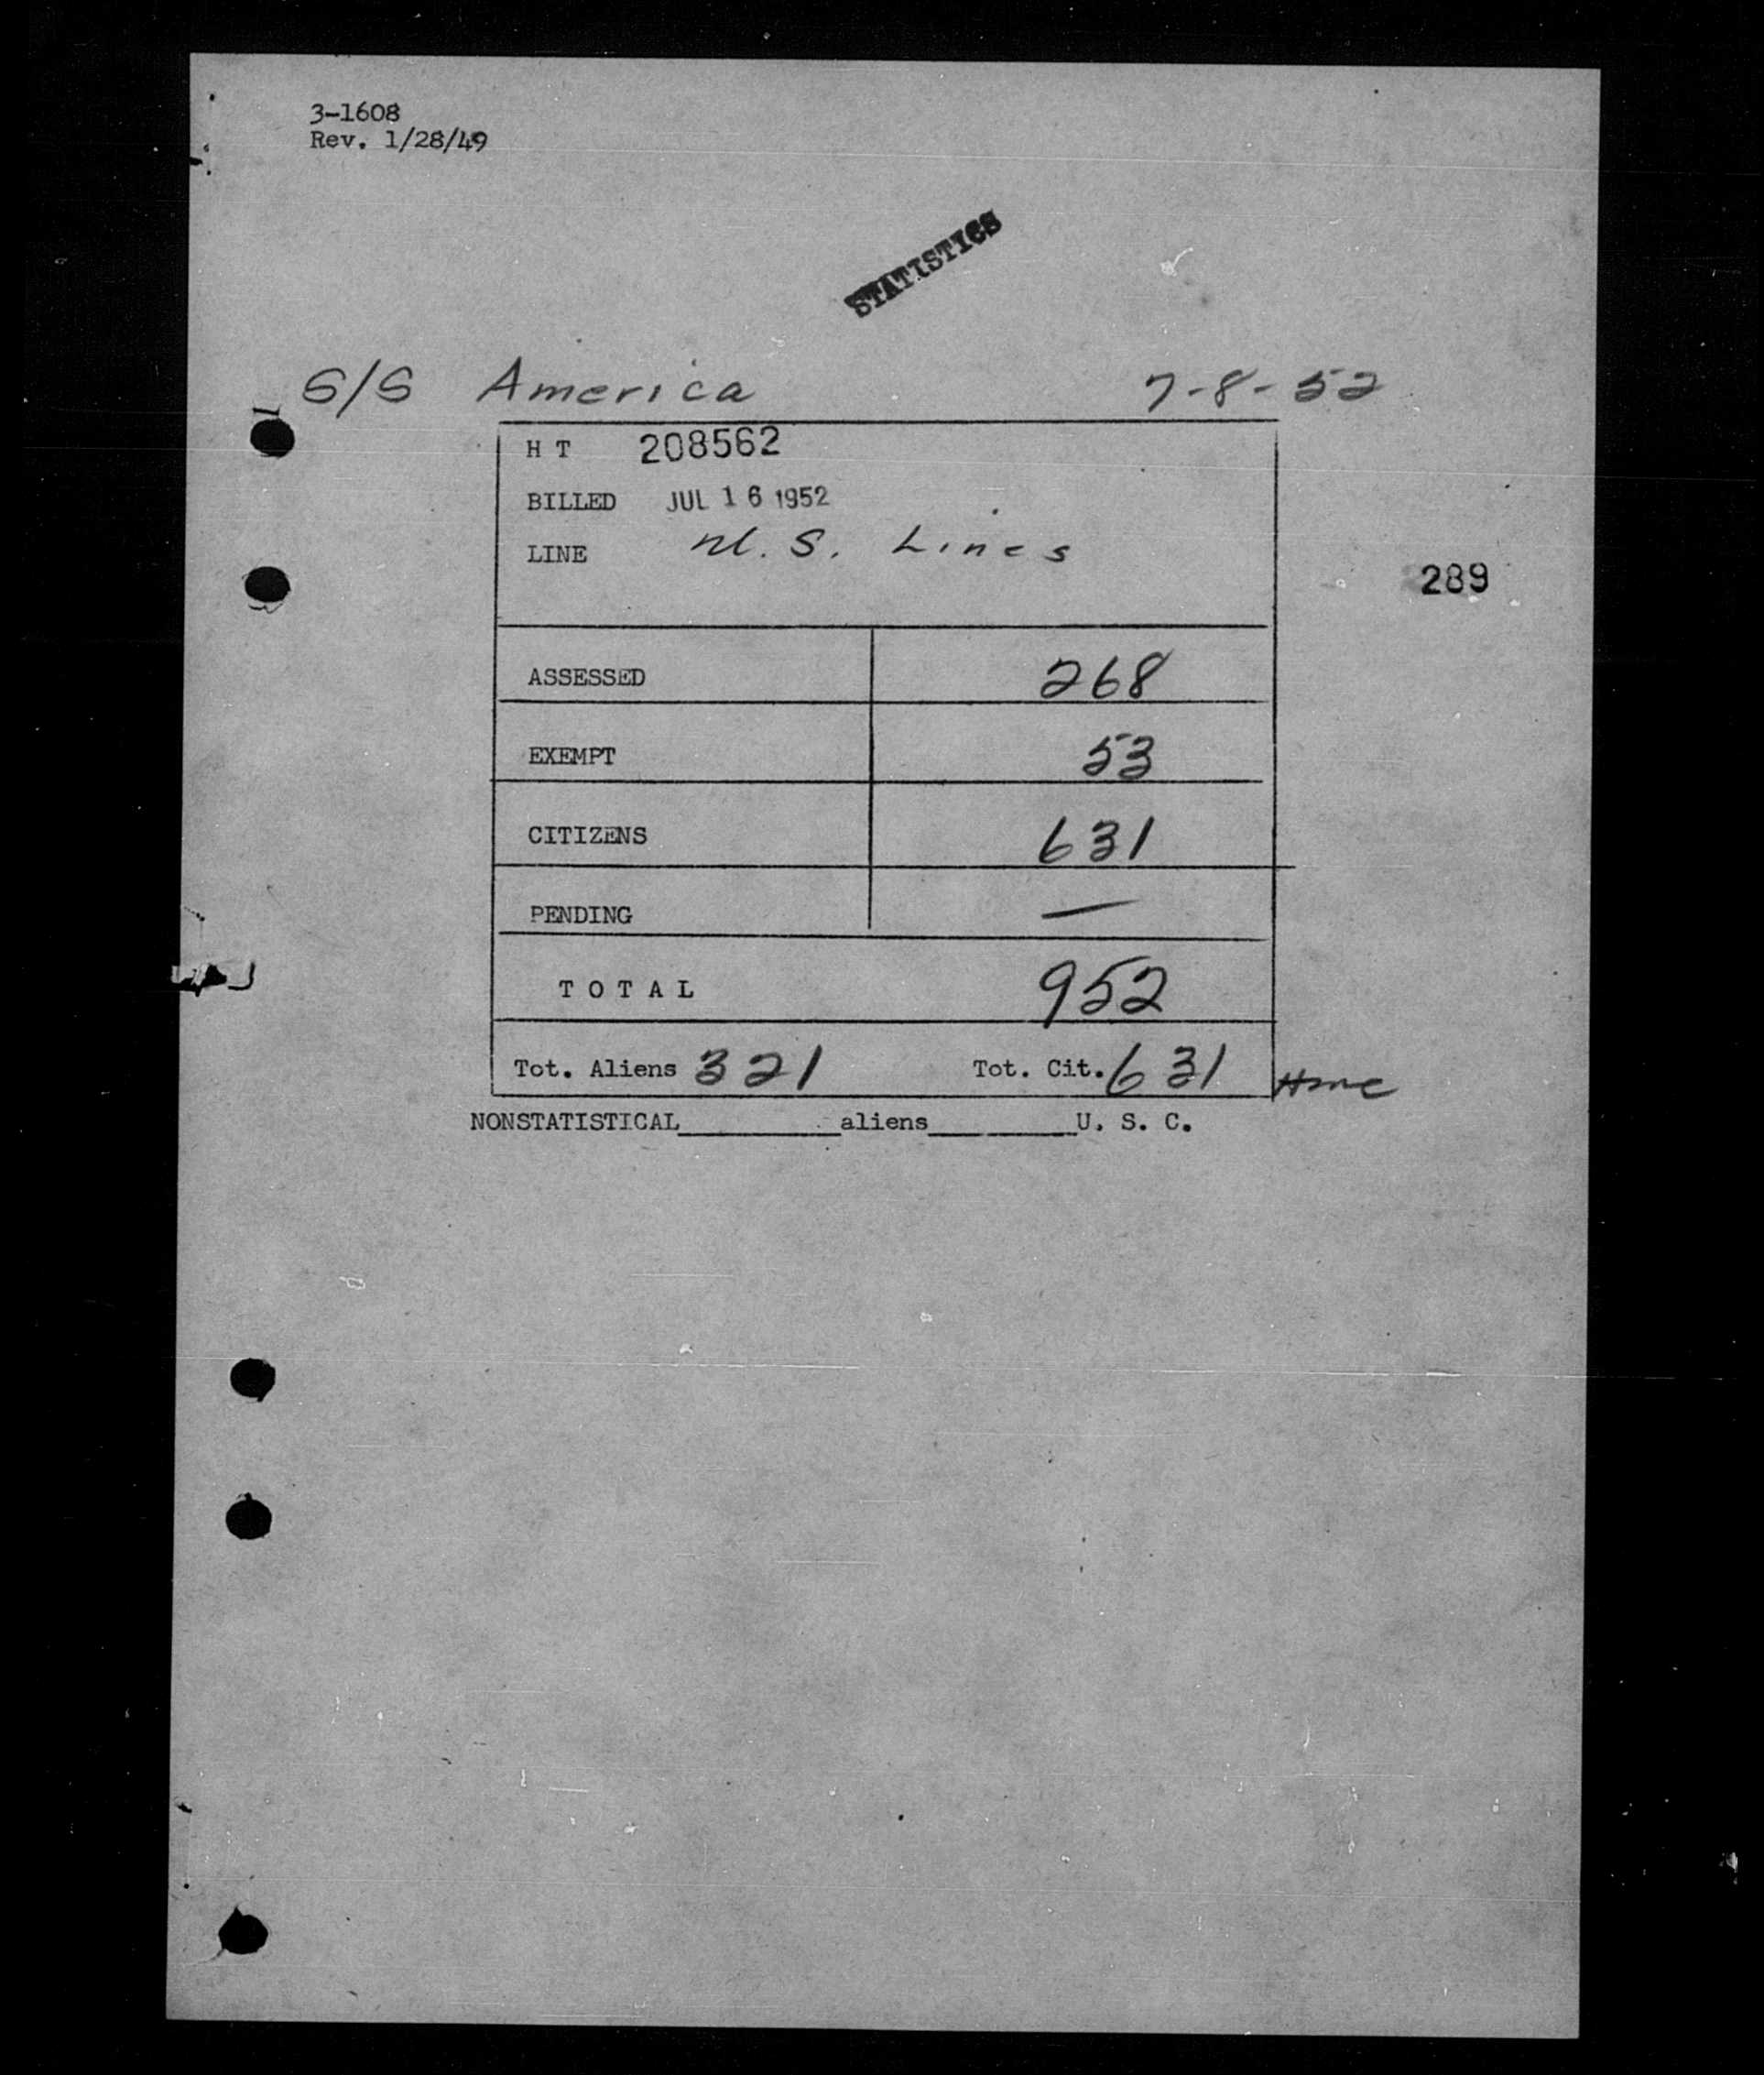 3-1608
Rev. 1/28/49
STATISTICS
S/S America 7-8-52
H T 208562
BILLED JUL 16 1952
LINE U. S. Lines
289
ASSESSED 268
EXEMPT 53
CITIZENS 631
PENDING —
T O T A L 952
Tot. Aliens 321 Tot. Cit. 631
NONSTATISTICAL________aliens________U. S. C.